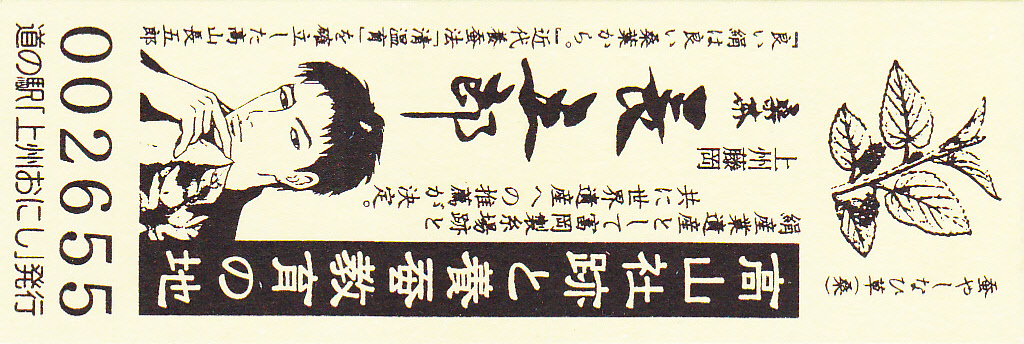 蚕やしなひ草(桑)
高山社跡と養蚕教育の地
絹産業遺産として富岡製糸場跡と
共に世界遺産への推薦が決定。
上州
藤岡
長五郎
『良い絹は良い桑葉から。』近代養蚕法「清温育」を確立した高山長五郎
002655
道の駅「上州おにし」発行